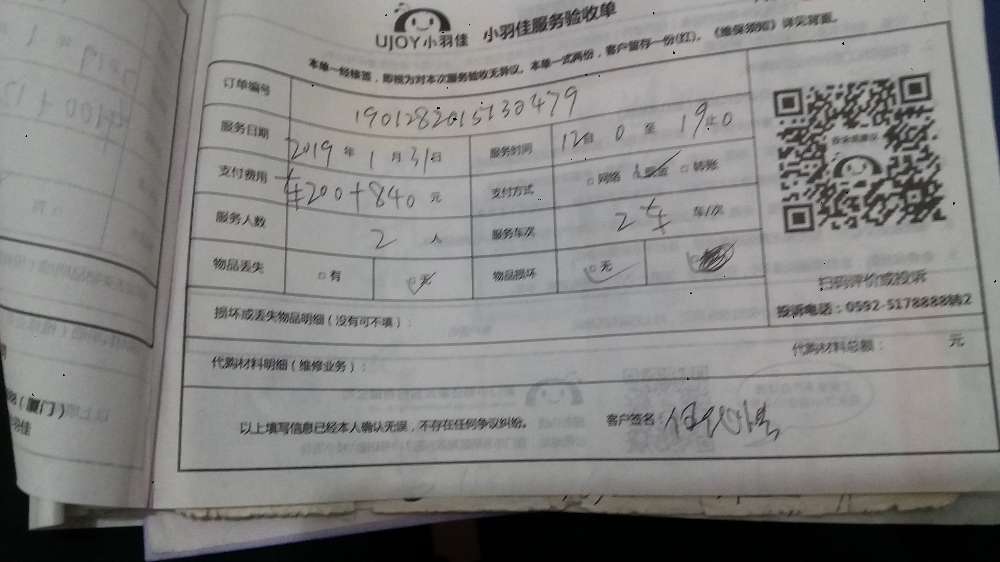 UJOY小羽佳 小羽佳服务验收单
本单一经接签，即视为对本次服务验收无异议。本单一式两份，客户留存一份(红)。《维保须知》详见背面。
订单编号 1901282015130479
服务日期 2019 年 1 月 31 日 服务时间 12 点 0 至 19 点 0
支付费用 ¥200+840 元 支付方式 □网络 □现金 □转账
服务人数 2 人 服务车次 2车 车/次
物品丢失 □有 □无 物品损坏 □无
损坏或丢失物品明细（没有可不填）：
代购材料明细（维修业务）： 代购材料总额： 元
以上填写信息已经本人确认无误，不存在任何争议纠纷。 客户签名：
扫码评价或投诉
投诉电话：0592-5178888转2
（厦门）